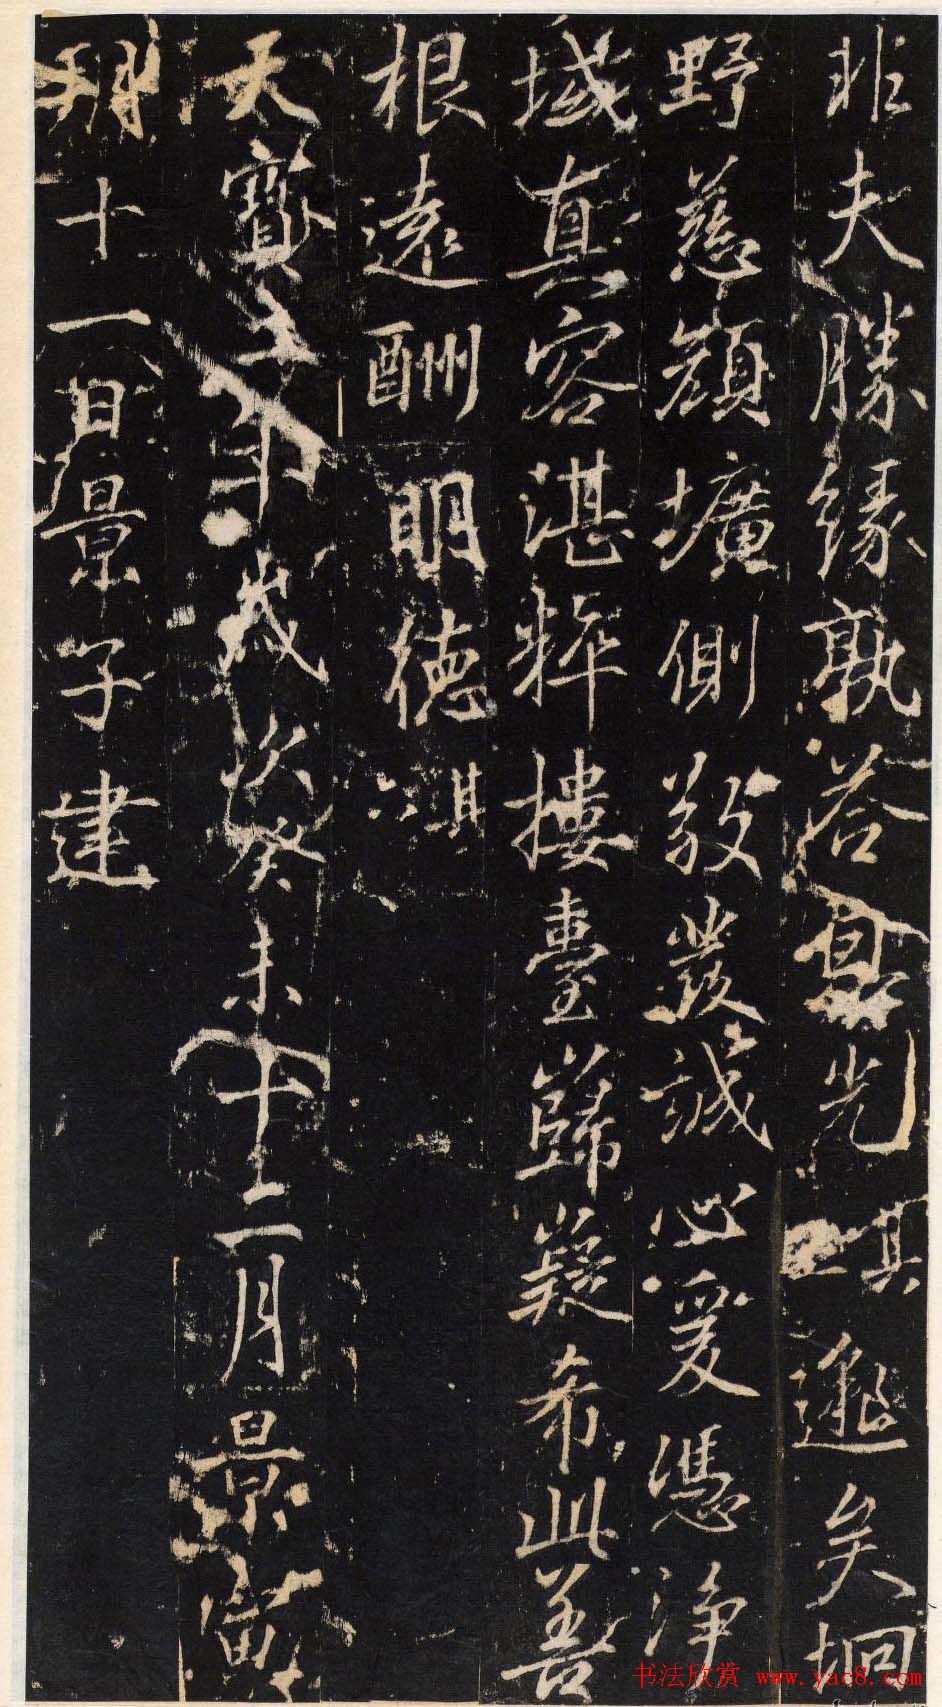 非夫勝緣孰荅光其邈矣坰
野慈顏壙側敬發誠心爰憑淨
域真容湛粹樓臺巋嶷希此善
根遠酬明德其六
天寶二年歲次癸未十二月景寅
朔十一日景子建
书法欣赏 www.yac8.com